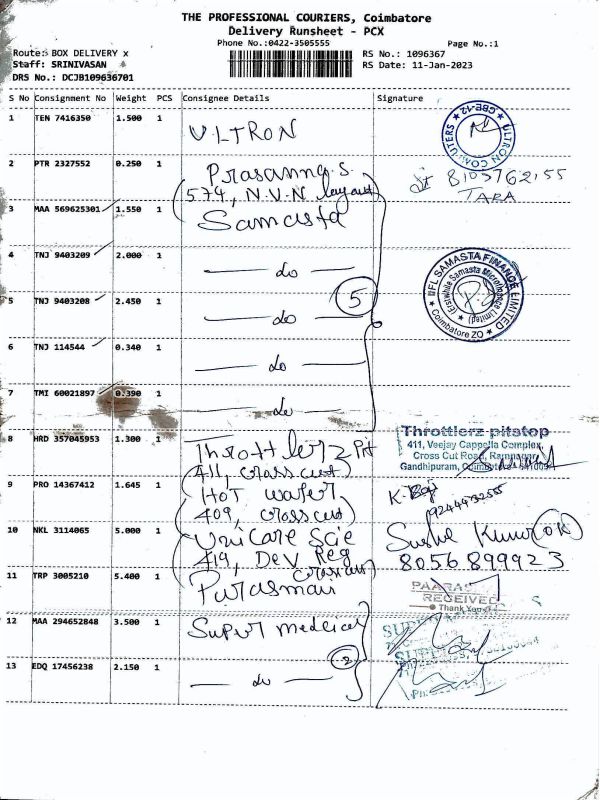 THE PROFESSIONAL COURIERS, Coimbatore
Delivery Runsheet - PCX
Phone No.:0422-3505555
Page No.:1
Route: BOX DELIVERY x
RS No.: 1096367
Staff: SRINIVASAN
RS Date: 11-Jan-2023
DRS No.: DCJB109636701
S No Consignment No Weight PCS Consignee Details Signature
1 TEN 7416350 1.500 1 ULTRON
ULTRON COM UTERS CBE-12
2 PTR 2327552 0.250 1 Prasanna.S
574, N.V.N. layout
TARA
3 MAA 569625301 1.550 1 Samasta
4 TNJ 9403209 2.000 1 — do —
IIFL SAMASTA FINANCE LIMITED
(Erstwhile Samasta Microfinance Limited)
Coimbatore ZO
5
5 TNJ 9403208 2.450 1 — do —
6 TNJ 114544 0.340 1 — do —
7 TMI 60021897 0.390 1 — do —
8 HRD 357045953 1.300 1 Throttlerz Pit
411, cross cut
Throttlerz-pitstop
411, Veejay Cappella Complex,
Cross Cut Road, Ramnagar,
Gandhipuram, Coimbatore 641009
9 PRO 14367412 1.645 1 HOT water
409, cross cut
10 NKL 3114065 5.000 1 Unicare Scie
419, Dev Reg
cross cut
8056899923
11 TRP 3005210 5.400 1
RECEIVED
Thank You
12 MAA 294652848 3.500 1 Super medical
2
13 EDQ 17456238 2.150 1 — do —